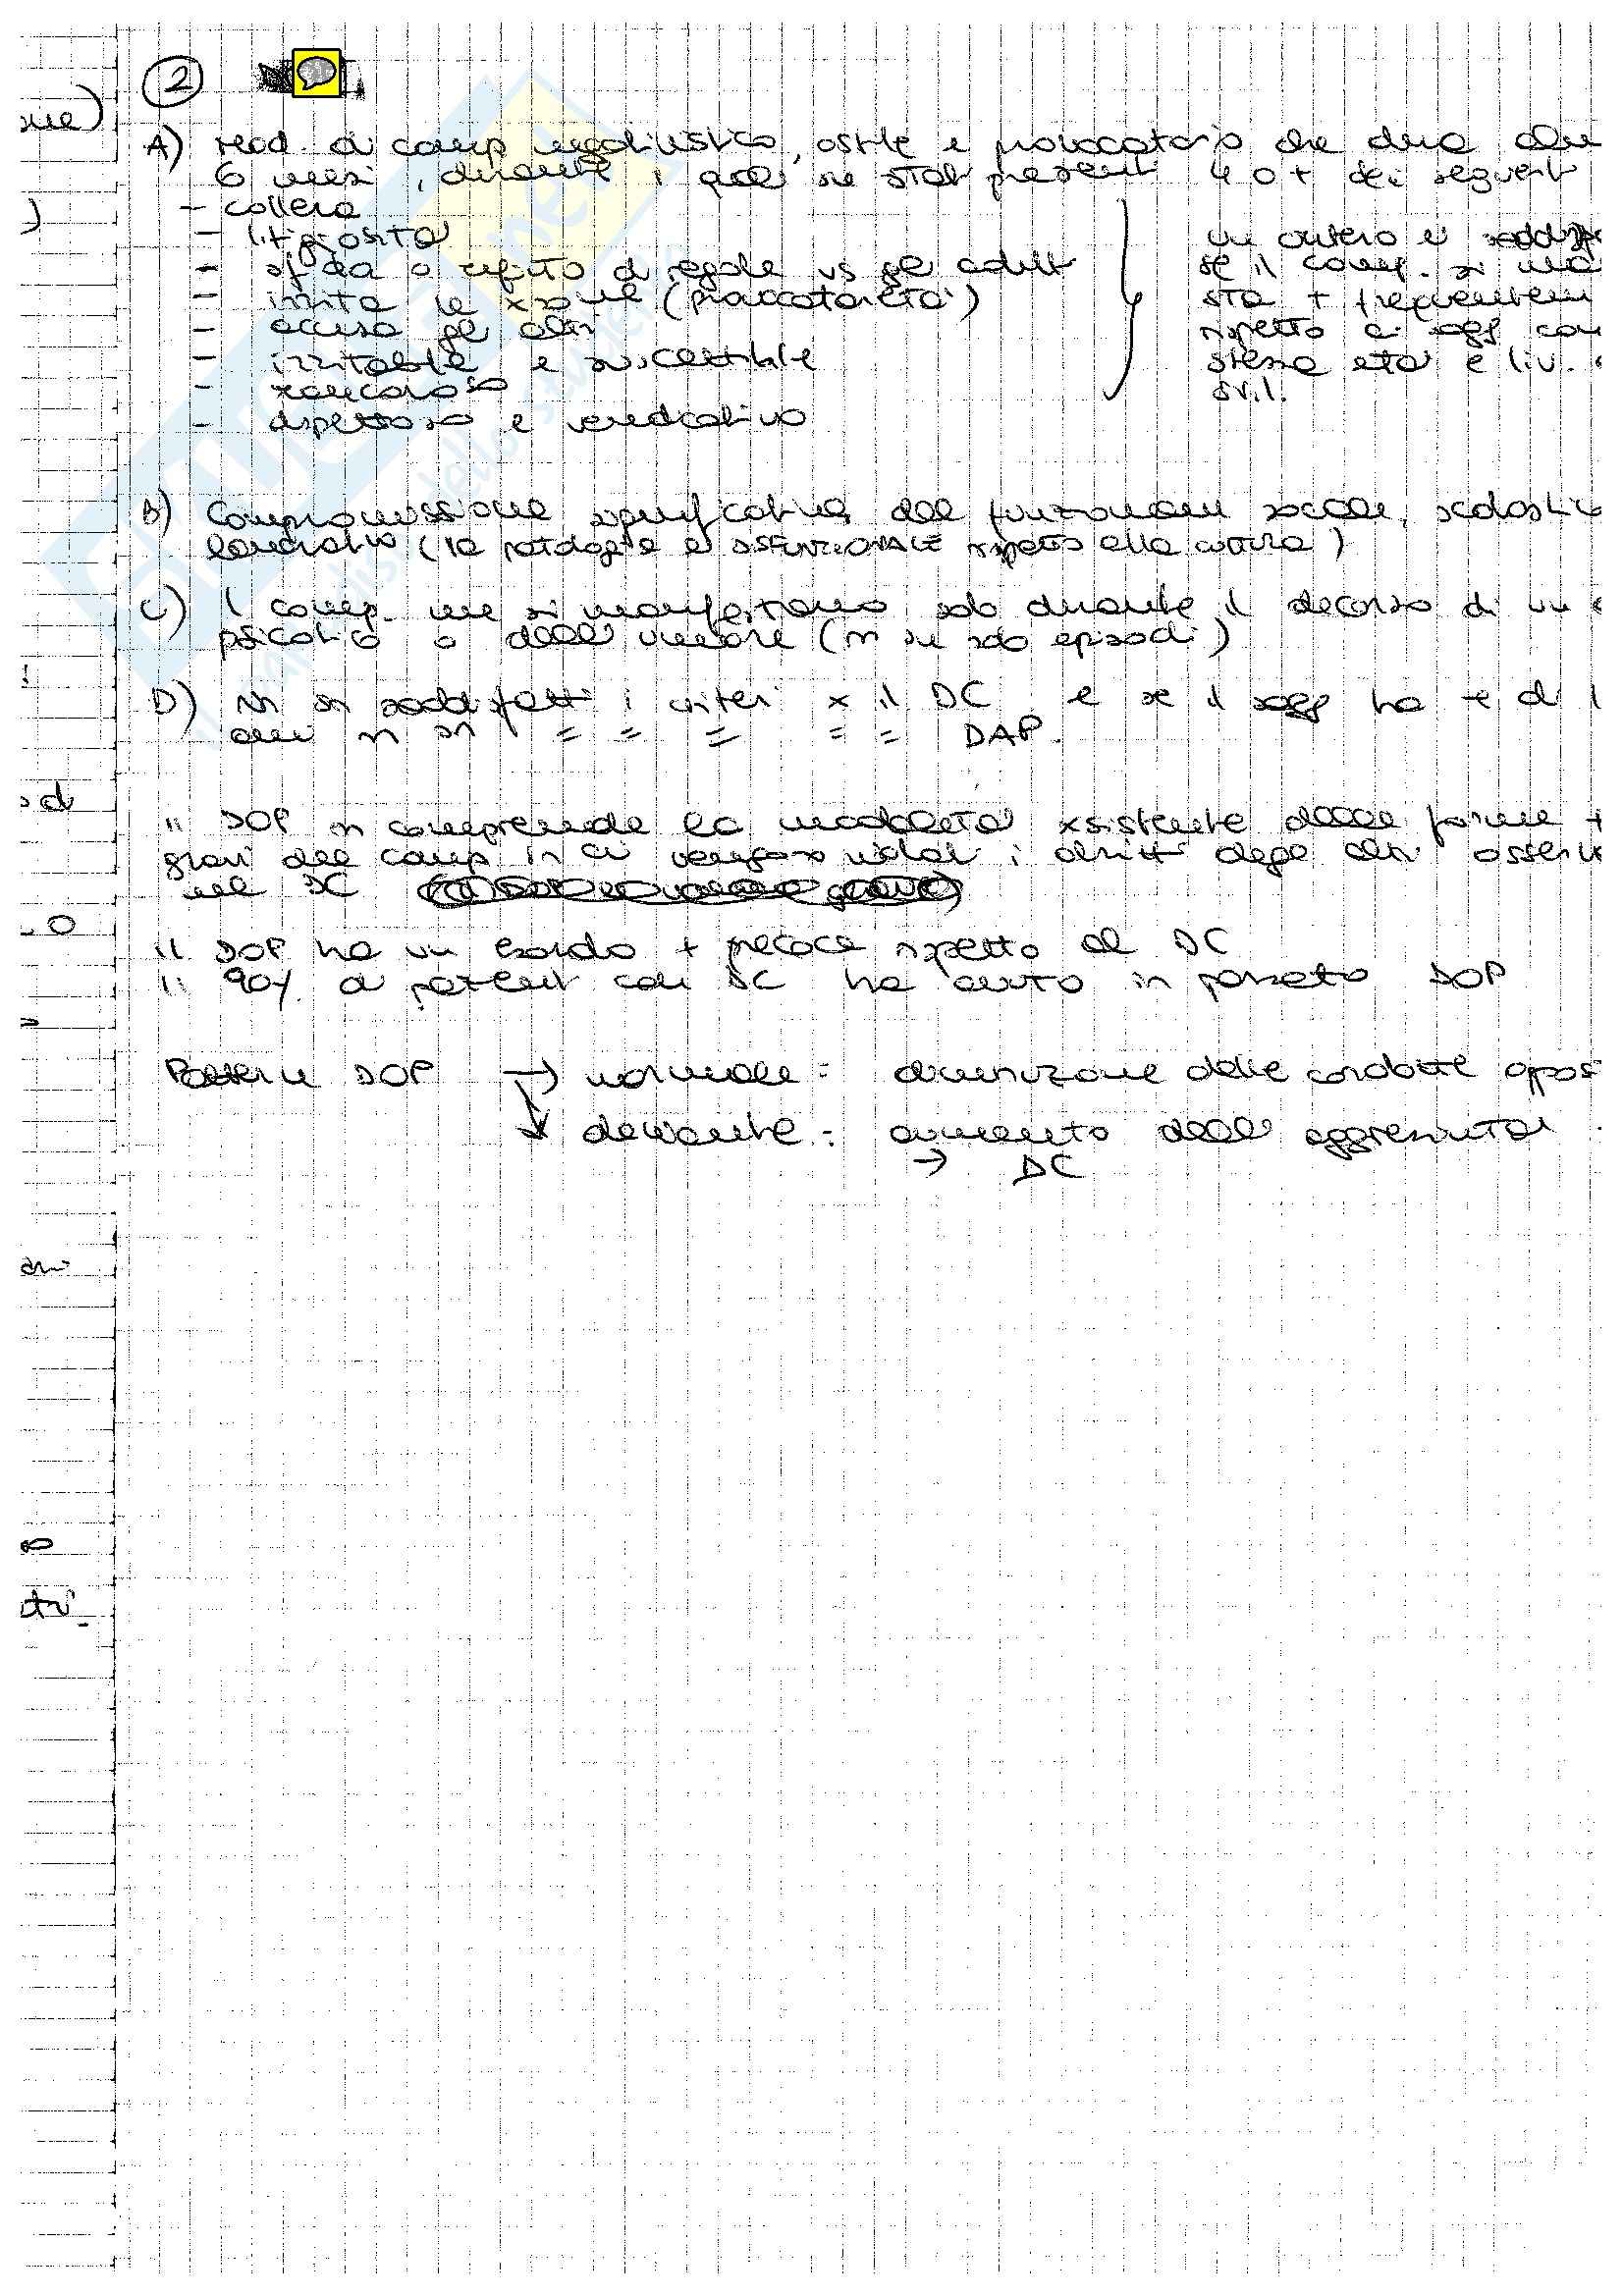 2
A) mod. di comp negativistico, ostile e provocatorio che dura alm
6 mesi, durante i quali sn stati presenti 4 o + dei seguenti
- collera
- litigiosità
- sfida o rifiuto di regole vs gli adulti
- irrita le xsone (provocatorietà)
- accusa gli altri
- irritabile e suscettibile
- rancoroso
- dispettoso e vendicativo
un criterio è soddisf
se il comp. si mani
sta + frequentem
rispetto ai sogg con
stessa età e liv.
svil.
B) Compromissione significativa del funzionam sociale, scolastico
lavorativo (la patologia è DISFUNZIONALE rispetto alla cultura)
C) I comp. nn si manifestano solo durante il decorso di un
psicotico o dell'umore (n sn solo episodi)
D) Nn sn soddisfatti i criteri x il DC e se il sogg ha + di 1
anni n sn = = = = = DAP.
Il DOP n comprende la modalità xsistente delle forme +
gravi del comp in cui vengono violati i diritti degli altri osserv
nel DC
Il DOP ha un esordio + precoce rispetto al DC
Il 90% di pazienti con DC ha avuto in passato DOP
Pattern DOP → normale: diminuzione delle condotte oppos
↓ deviante: aumento dell'aggressività
→ DC